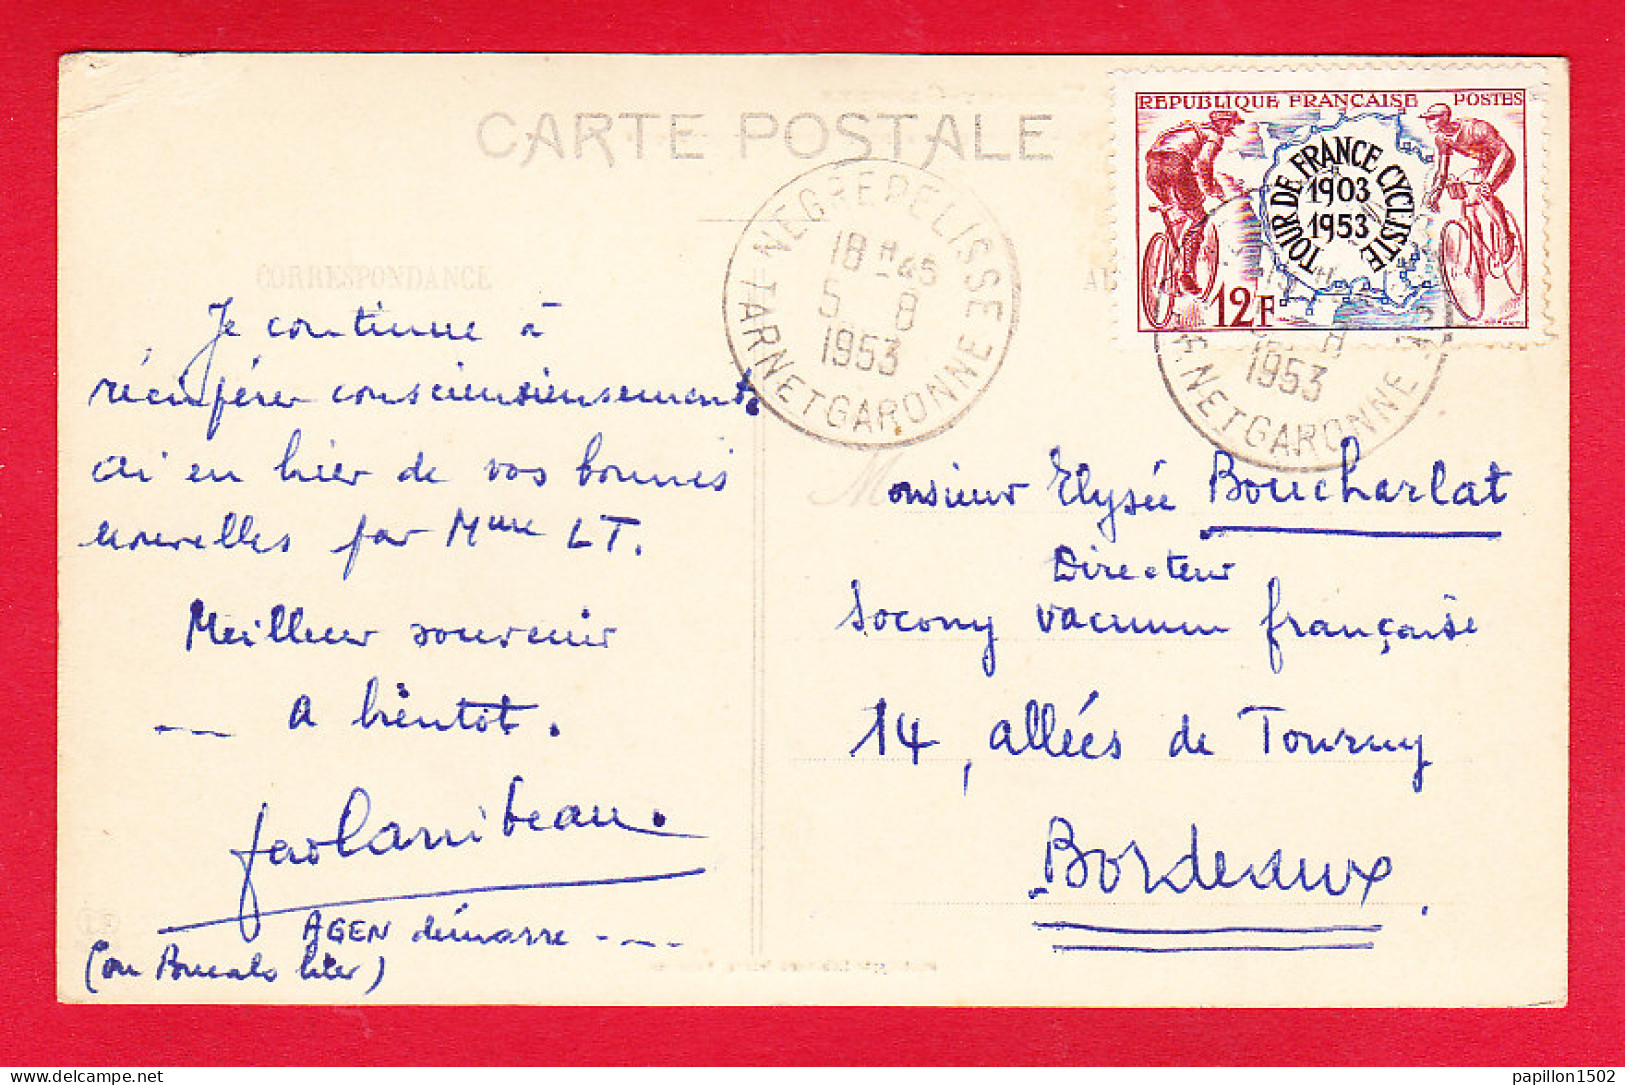 CARTE POSTALE
CORRESPONDANCE
Je continue à
récupérer consciencieusement.
ai eu hier de vos bonnes
nouvelles par Mme LT.
Meilleur souvenir
__ a bientôt.
AGEN démarre ----
REPUBLIQUE FRANÇAISE POSTES
TOUR DE FRANCE CYCLISTE
1903
1953
12F
NEGREPELISSE
18H45
5 8
1953
TARN ET GARONNE
1953
NET GARONNE
Monsieur Elysée Boucharlat
Directeur
Socony Vacuum française
14, allées de Tourny
Bordeaux.
delcampe.net
papillon1502